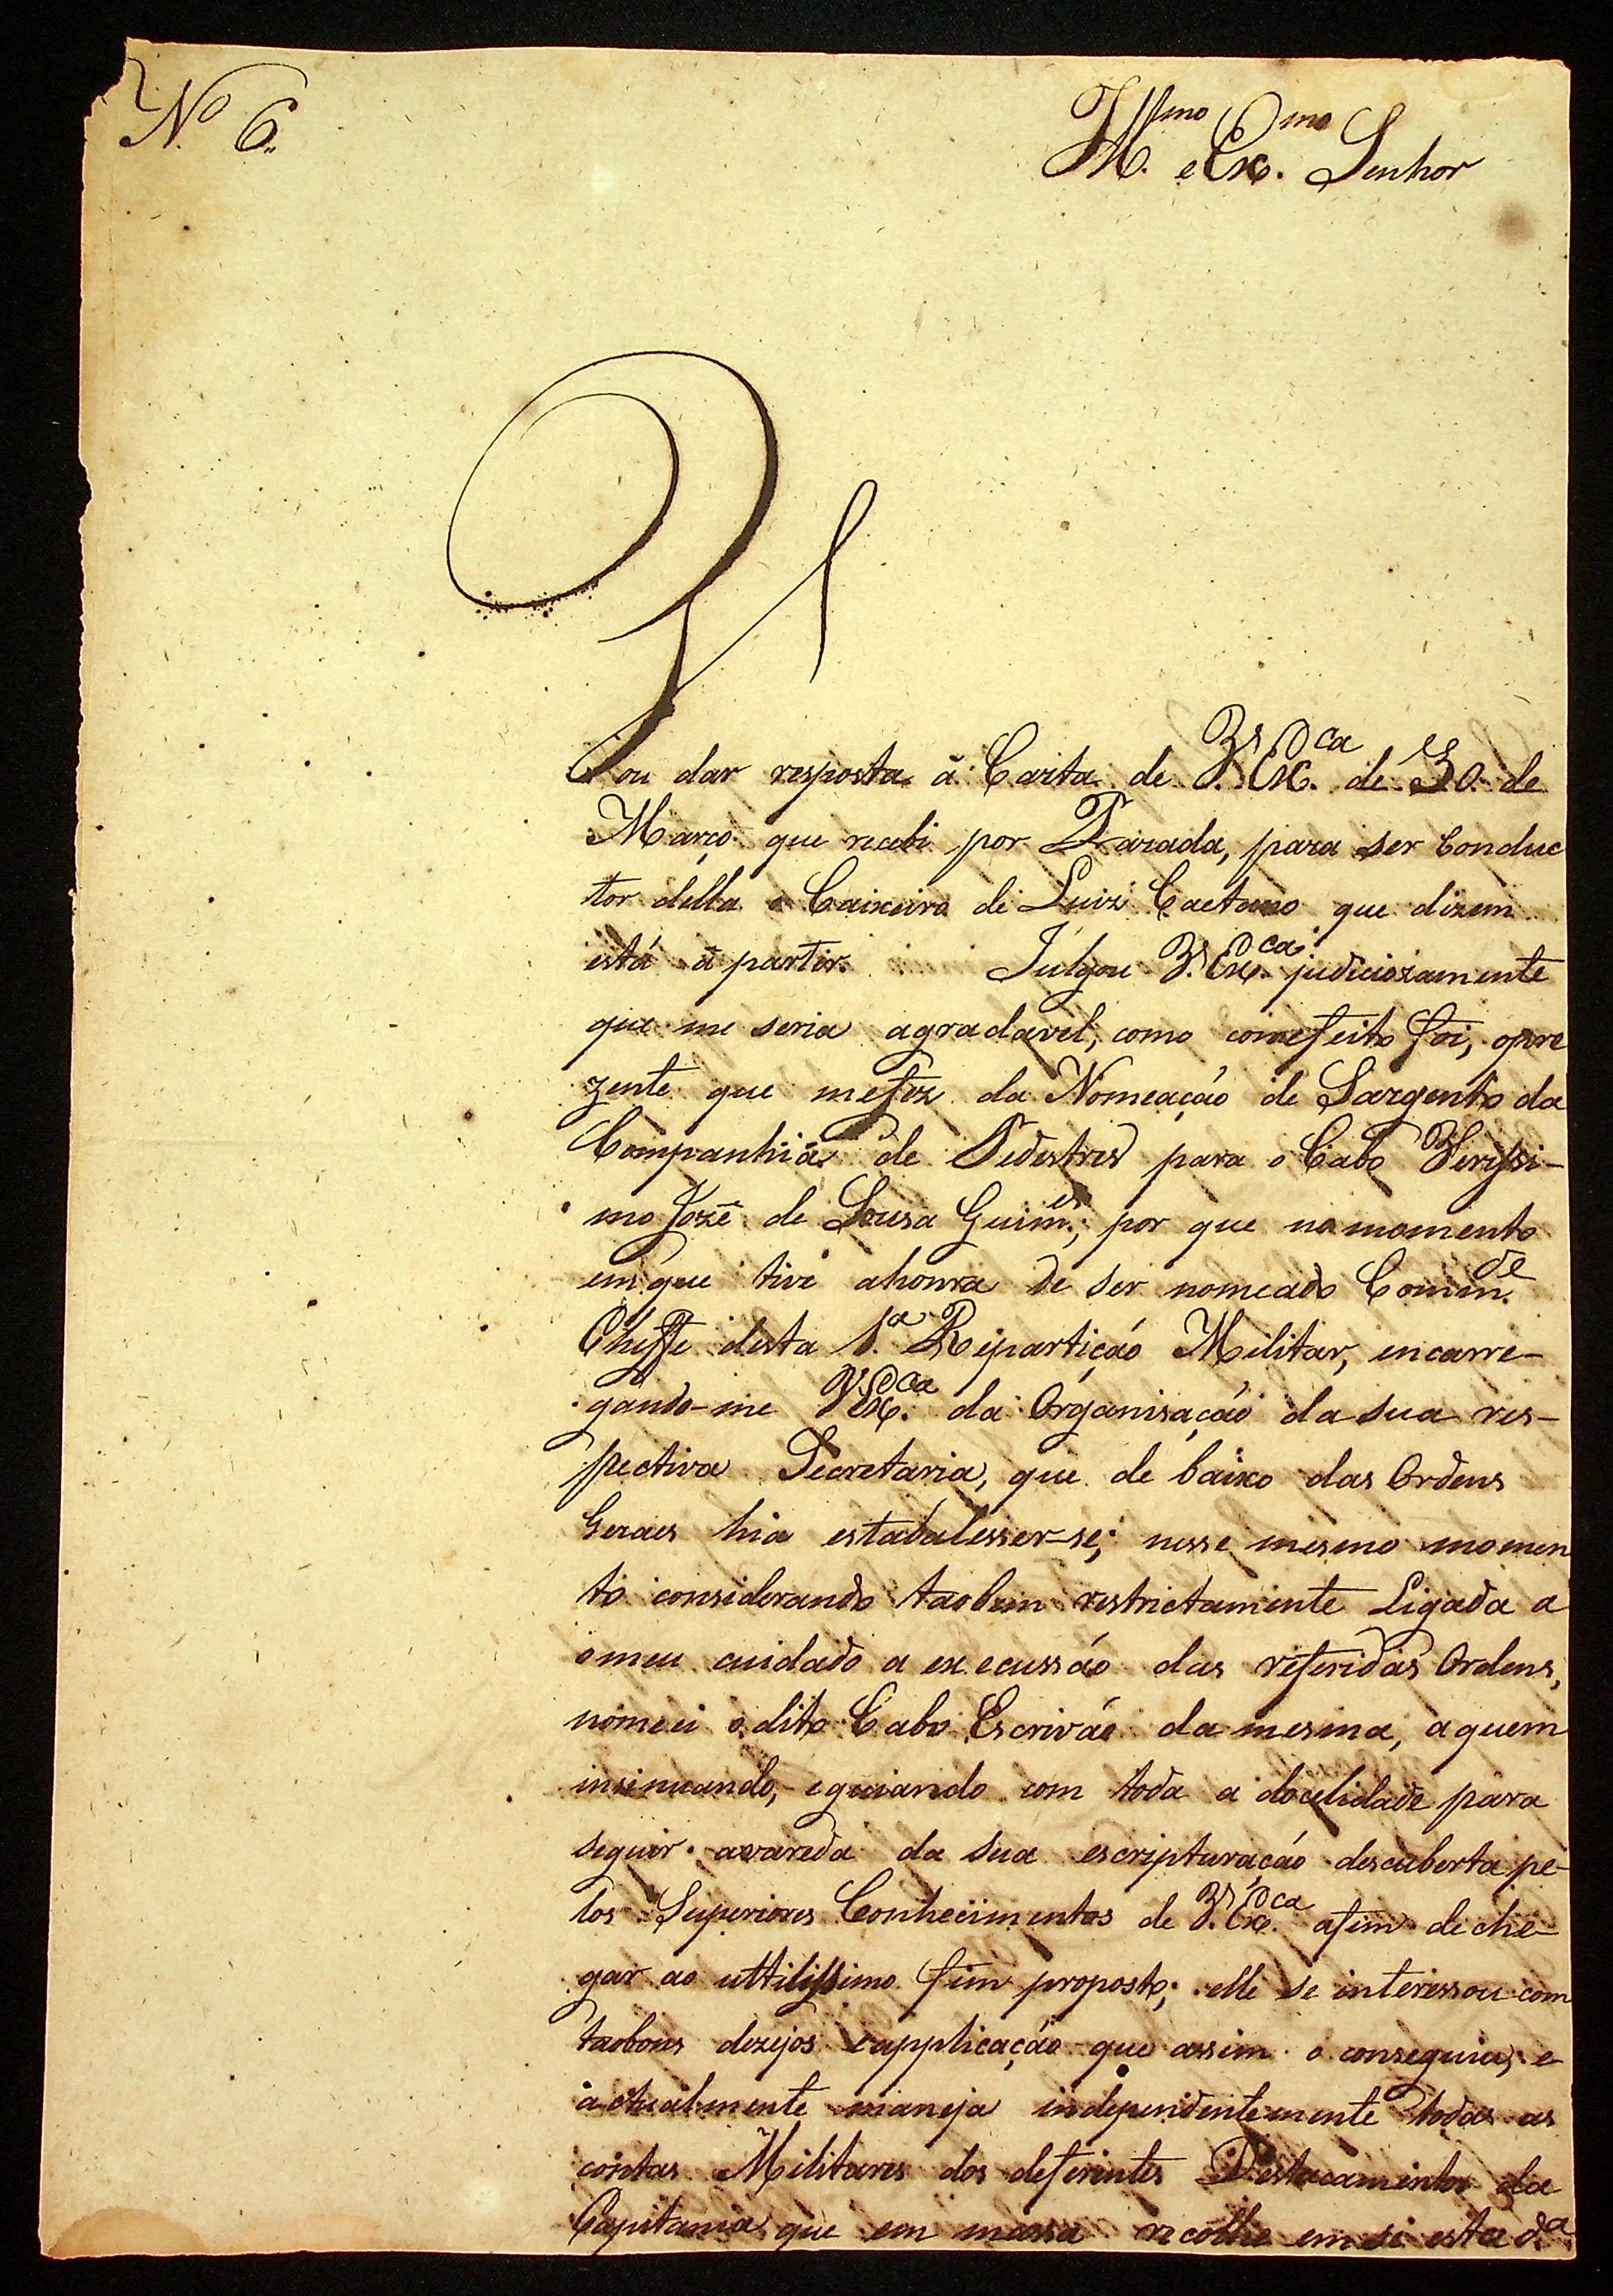 Nº 6.
Ill.mo e Ex.mo Senhor
Vou dar resposta á Carta de V. Ex.ca de 30 de
Março que recebi por Parada, para ser conduc
tor della o Caixeiro de Luiz Caetano que dizem
está á partir. Julgou V. Ex.ca judiciozamente
que me seria agradavel, como comefeito foi, opre
zente que mefez da Nomeação de Sargento da
Companhia de Pedestres para o Cabo Verissi-
mo Jozé de Sousa Guim.es, por que no momento
em que tive ahonra de ser nomeado Comm.de
Cheffe desta 1.a Repartição Militar, encarre-
gando-me V. Ex.ca da Organisação da sua res-
pectiva Secretaria, que de baixo das Ordens
Geraes hia estabalesser-se; nesse mesmo momen
to considerando taobem restrictamente Ligada a
o meu cuidado a execussão das referidas Ordens,
nomeei o dito Cabo Escrivão da mesma, aquem
insinuando, eguiando com toda a docelidade para
seguir avareda da sua escripturação descuberta pe-
los Superiores Conhecimentos de V. Ex.ca afim de che-
gar ao uttilissimo fim proposto; elle se interessou com
taobons dezejos eapplicação que assim o conseguia, e
actualmente maneja independentemente todas as
contas Militares dos deferentes Destacamentos da
Capitania que em massa recolhe em si esta d.a